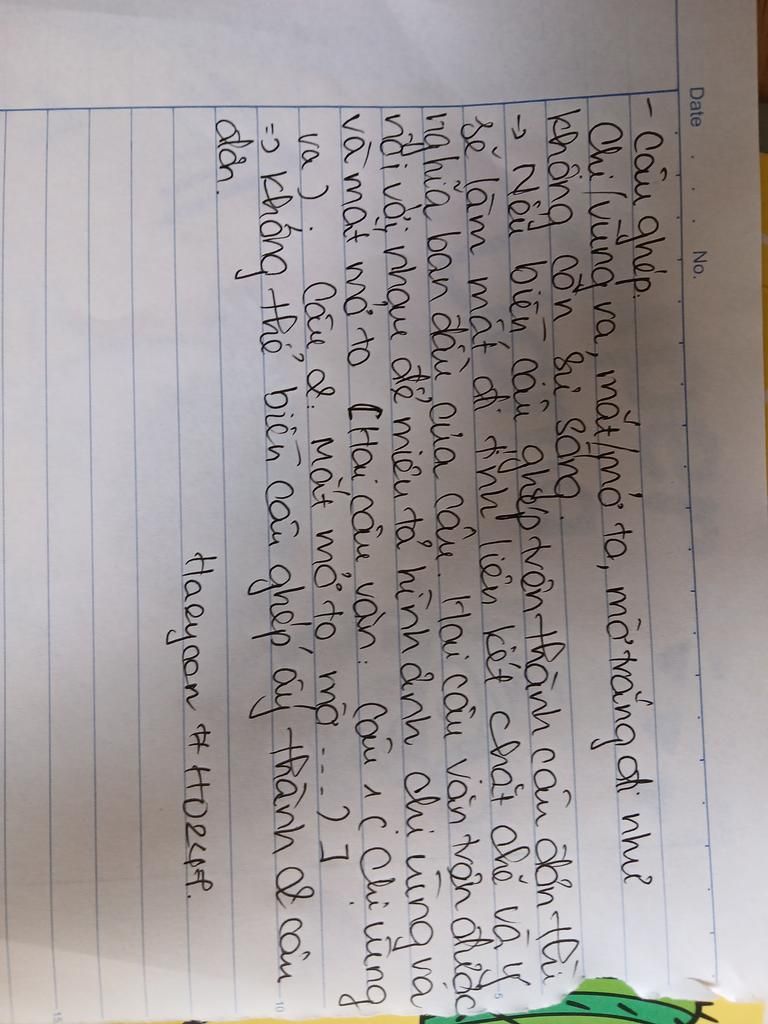 Date . . . No.
- Câu ghép.
Chi/vùng ra, mắt/mở to, mờ trắng đi như
không còn sự sống.
→ Nếu biến câu ghép trên thành câu đơn thì
sẽ làm mất đi tính liên kết chặt chẽ và ý
nghĩa ban đầu của câu. Hai câu văn trên được
nối với nhau để miêu tả hình ảnh chi vùng va
và mắt mở to [Hai câu văn: Câu 1 ( Chi vùng
va). Câu 2: Mắt mở to mờ ...) ]
=> không thể biến câu ghép ấy thành 2 câu
đơn.
Haeyoon # H0247.
5
10
15